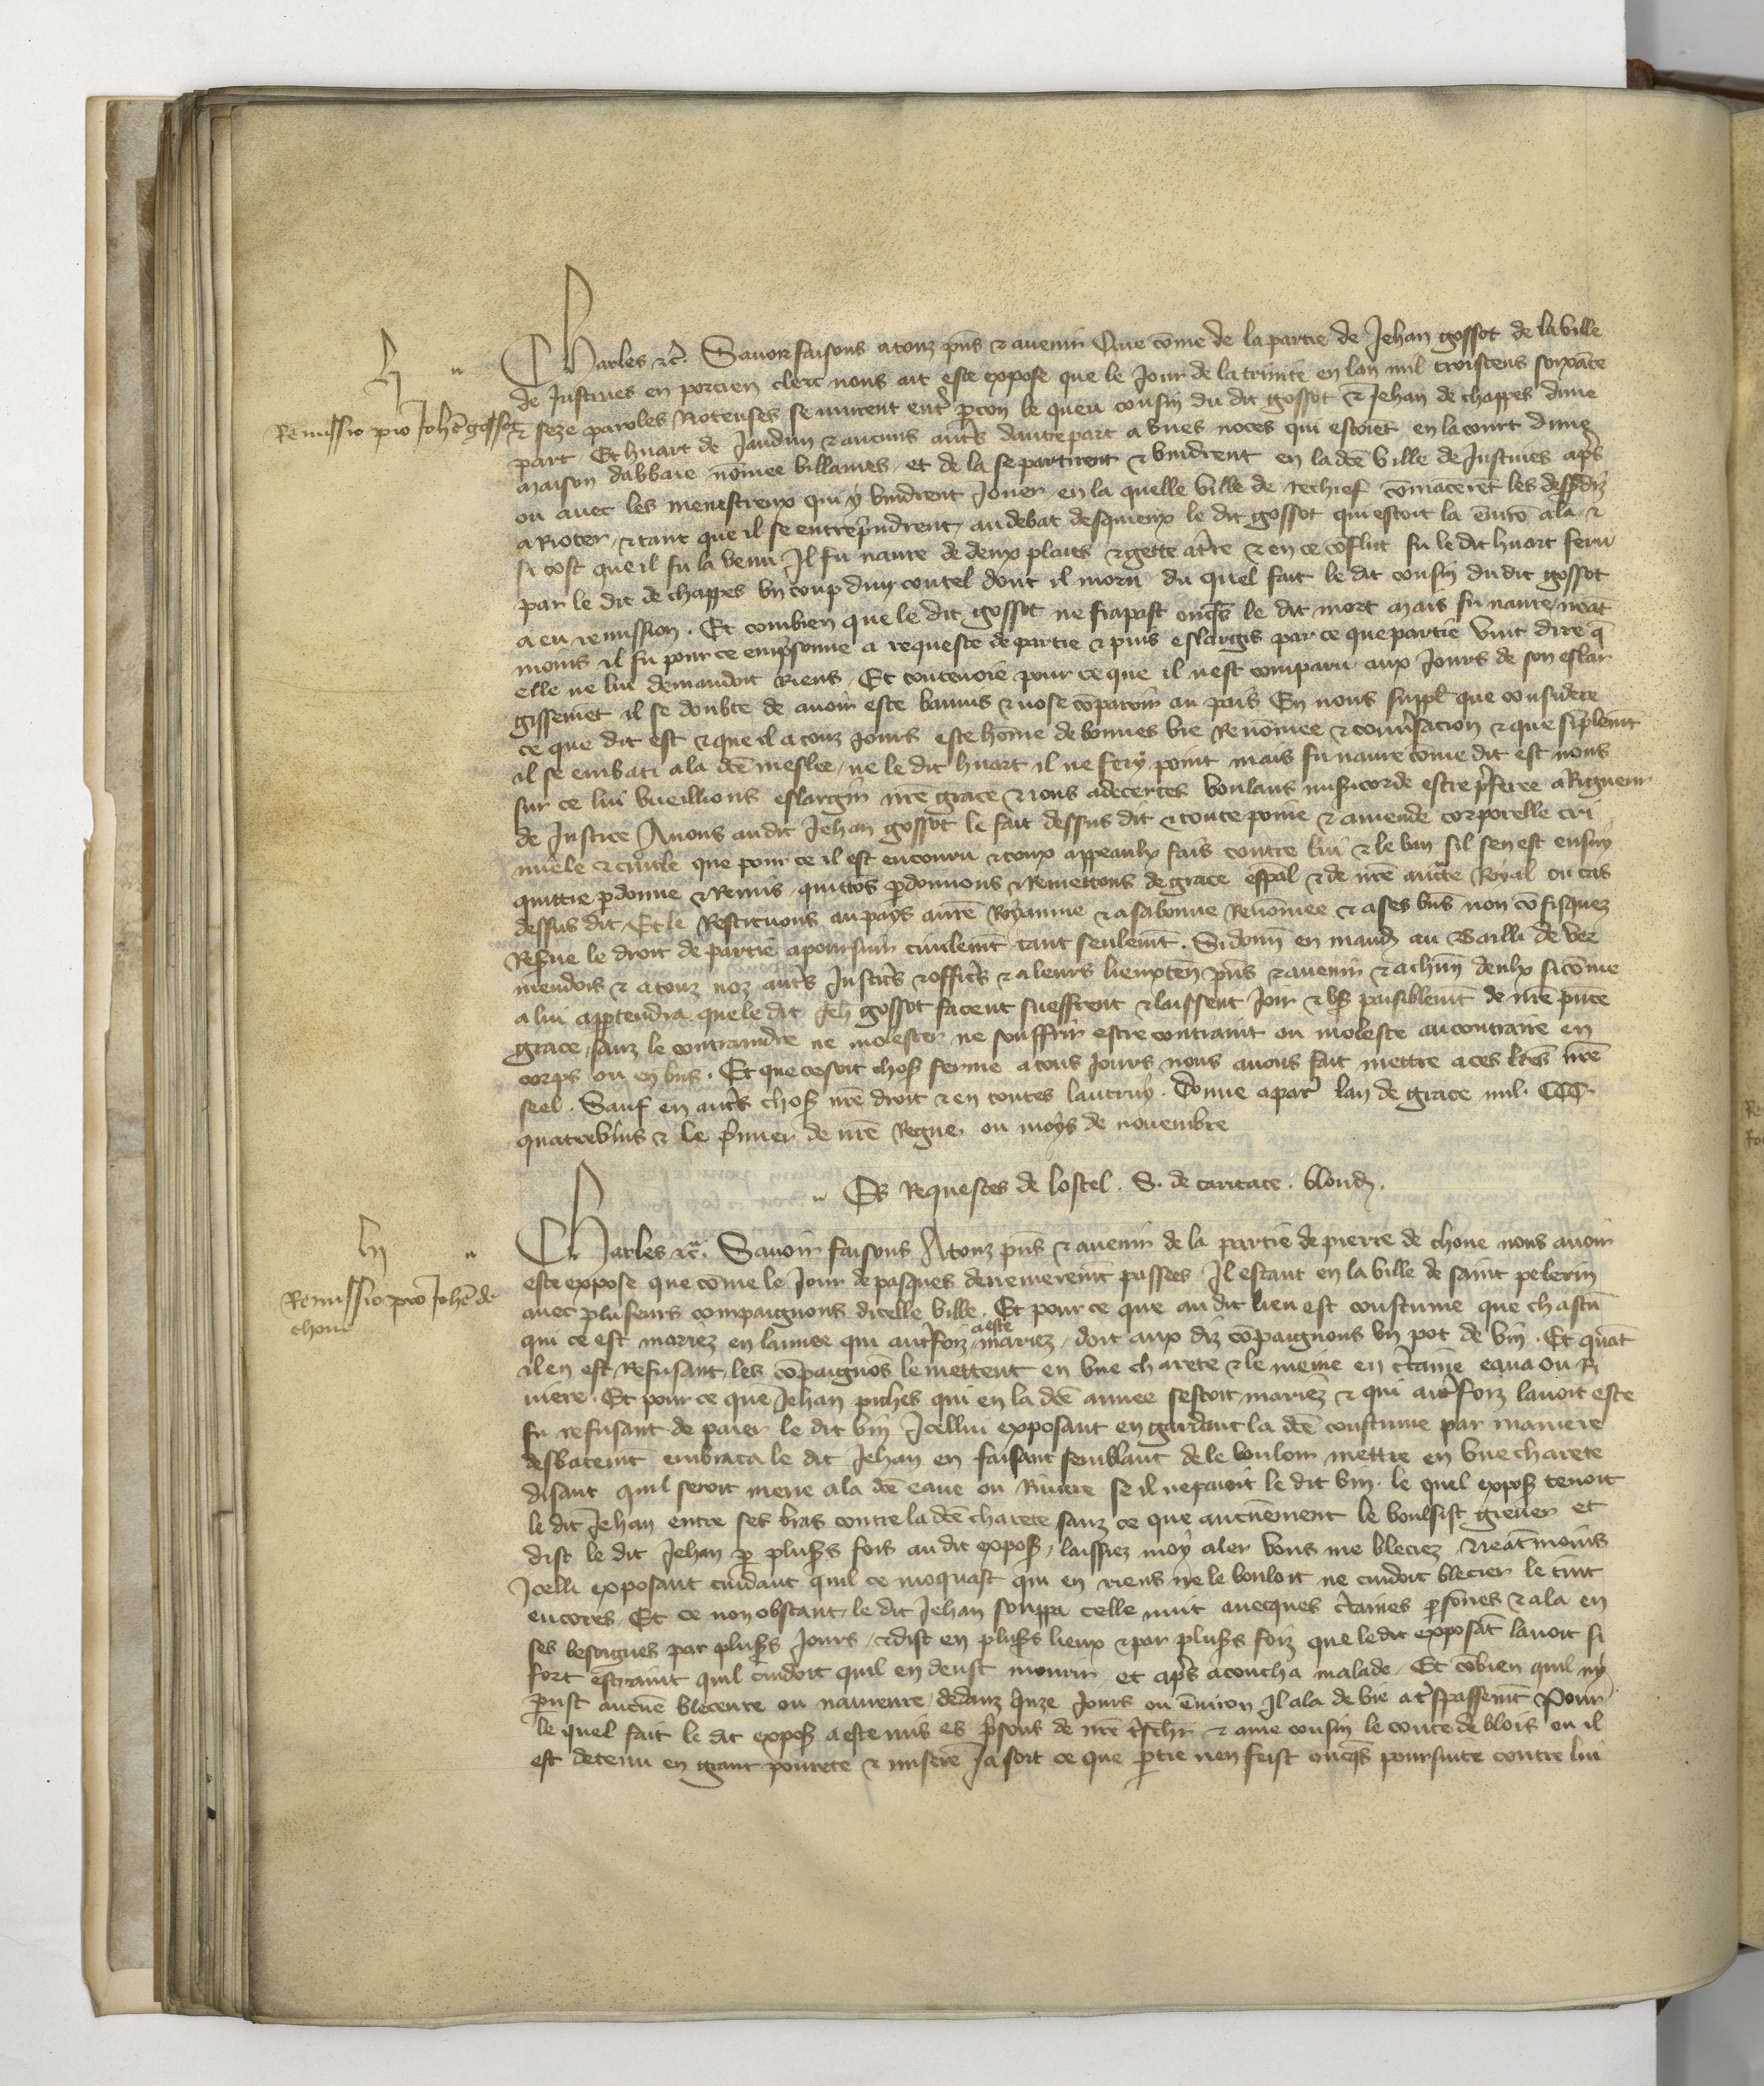 Charles &c̃. Savoir faisons a touz p̃ns & avenir Que cõme de la partie de Jehan gossot de la ville
de Justines en portien clerc nous ait este expose que le jour de la trinite en lan mil troiscens soixãte
Remissio pro Joh̃e gossot
& seze paroles Rioteuses se murent ent̾ p̱con le queu cousin du dit gossot & Jehan de chappes dune
part Et huart de Jandun & aucuns aut̾s dautre part a unes noces qui estoiẽt en la court dune
maison dabbaie nõmee billaines et de la se partirent & vindrent en la dc̃e ville de Justines ap̾s
ou avec les menestreux qui y vindrent Jouer en la quelle ville de rechief cõmãcerẽt les dessusdiz
a Rioter & tant que il se entrep̾ndrent au debat desquieux le dit gossot qui estoit la ẽviro ala &
si tost que il fu la venu Il fu navre de deux plaies & gette a t̾re & en ce cõflict fu le dit huart feru
par le dit de chappes un coup dun coutel dont il moru du quel fait le dit cousin du dit gossot
a eu remission . Et combien que le dit gossot ne frapast onq̃s le dit mort mais fu navre neãt
moins il fu pour ce emp̾sonne a requeste de partie & puis eslargis par ce que partie vint dire q̃
elle ne lui demandoit Riens Et toutevoie pour ce que il nest comparu aux Jours de son eslar
gissemẽt il se doubte de avoir este bannis & nose cõparoir au pais En nous suppl̃ que considere
ce que dit est & que il a touz jours este hõme de bonnes vie Renõmee & conv̾sacion & que sĩplemẽt
il se embati a la dc̃e meslee ne le dit huart il ne fery point mais fu navre cõme dit est nous
sur ce lui vueillions eslargir nr̃e grace & nous adecertes voulans mis̾icorde estre p̾feree a Rigueur
de Justice Avons au dit Jehan gossot le fait dessus dit & toute peine & amende corporelle cri
minele & civile que pour ce il est encouru & toux appeaulx fais contre lui & le ban sil sen est ensuy
quittie p̱donne & Remis quittõs p̱donnons & Remettons de grace esp̃al & de nr̃e auct̃e Royal ou cas
dessus dit Et le Restituons au pays a nr̃e Royaume & a sa bonne Renõmee & a ses bñs non cõfisquez
Res̾ve le droit de partie a poursuir civilemẽt tant seulemẽt . Si donñ en mand̃ au Bailli de Ver
mendois & a touz noz aut̾s Justic̾s & offic̾s & a leurs lieuxteñ p̃ns & avenir & a chũn deulx si cõme
a lui app̱tendra que le dit Jeh̃ gossot facent sueffrent & laissent Joir & us̾ paisiblemẽt de nr̃e p̃nte
grace sanz le contraindre ne molester ne souffrir estre contraint ou moleste au contraire en
corps ou en bñs . Et que ce soit chose ferme a tous Jours nous avons fait mettre a ces lr̃es nr̃e
seel . Sauf en aut̾s choses nr̃e droit & en toutes lautruy . Donne a par̃ lan de grace mil . CCC.
quatrevins & le p̾mier de nr̃e Regne ou moys de novembre
Es Requestes de lostel . S. de caritate . blond̃ .
Charles &c̃. Savoir faisons A touz p̃ns & avenir de la partie de pierre de chone nous avoir
este expose que cõme le Jour de pasques derrenieremẽt passees Il estant en la ville de saint pelerin
Remissio pro Joh̃e de
chone
avec pluseurs compaignons dicelle ville . Et pour ce que au dit lieu est coustume que chascũ
qui ce est mariez en lannee qui aut̾foiz a este mariez doit aux diz cõpaignons un pot de vin . Et quãt
il en est Refusant les cõpaignõs le mettent en une charete & le meine en c̾taine eaua ou Ri
viere . Et pour ce que Jehan piches qui en la dc̃e annee sestoit mariez & qui aut̾foiz lavoit este
fu refusant de paier le dit vin Icellui exposant en gardant la dc̃e coustume par maniere
desbatemẽt embraca le dit Jehan en faisant semblant de le vouloir mettre en une charete
disant quil seroit mene a la dc̃e eaue ou Riviere se il ne paioit le dit vin . le quel expos̃ tenoit
le dit Jehan entre ses bras contre la dc̃e charete sanz ce que aucunement le voulsist grever et
dist le dit Jehan p̱ plus̾s fois au dit expos̃ laissiez moy aler vous me bleciez & neãtmoins
Icelli exposant cuidant quil ce moquast qui en riens ne le vouloit ne cuidoit blecier le tint
encores Et ce non obstant le dit Jehan souppa celle nuit avecques c̾taines p̱sõnes & ala en
ses besoignes par plus̾s Jours & dist en plus̾s lieux & par plus̾s foiz que le dit exposãt lavoit si
fort estraint quil cuidoit quil en deust mourir et ap̾s acoucha malade Et cõbien quil ny
p̱ust aucũe bleceure ou navreure dedanz onze Jours ou ẽviron Il ala de vie a t̾spassemẽt Pour
le quel fait le dit expos̃ a este mis es p̾sons de nr̃e t̾sch̾r & ame cousin le conte de blois ou il
est detenu en grant povrete & misere Ja soit ce que p̱tie nen feist onq̃s poursuite contre lui